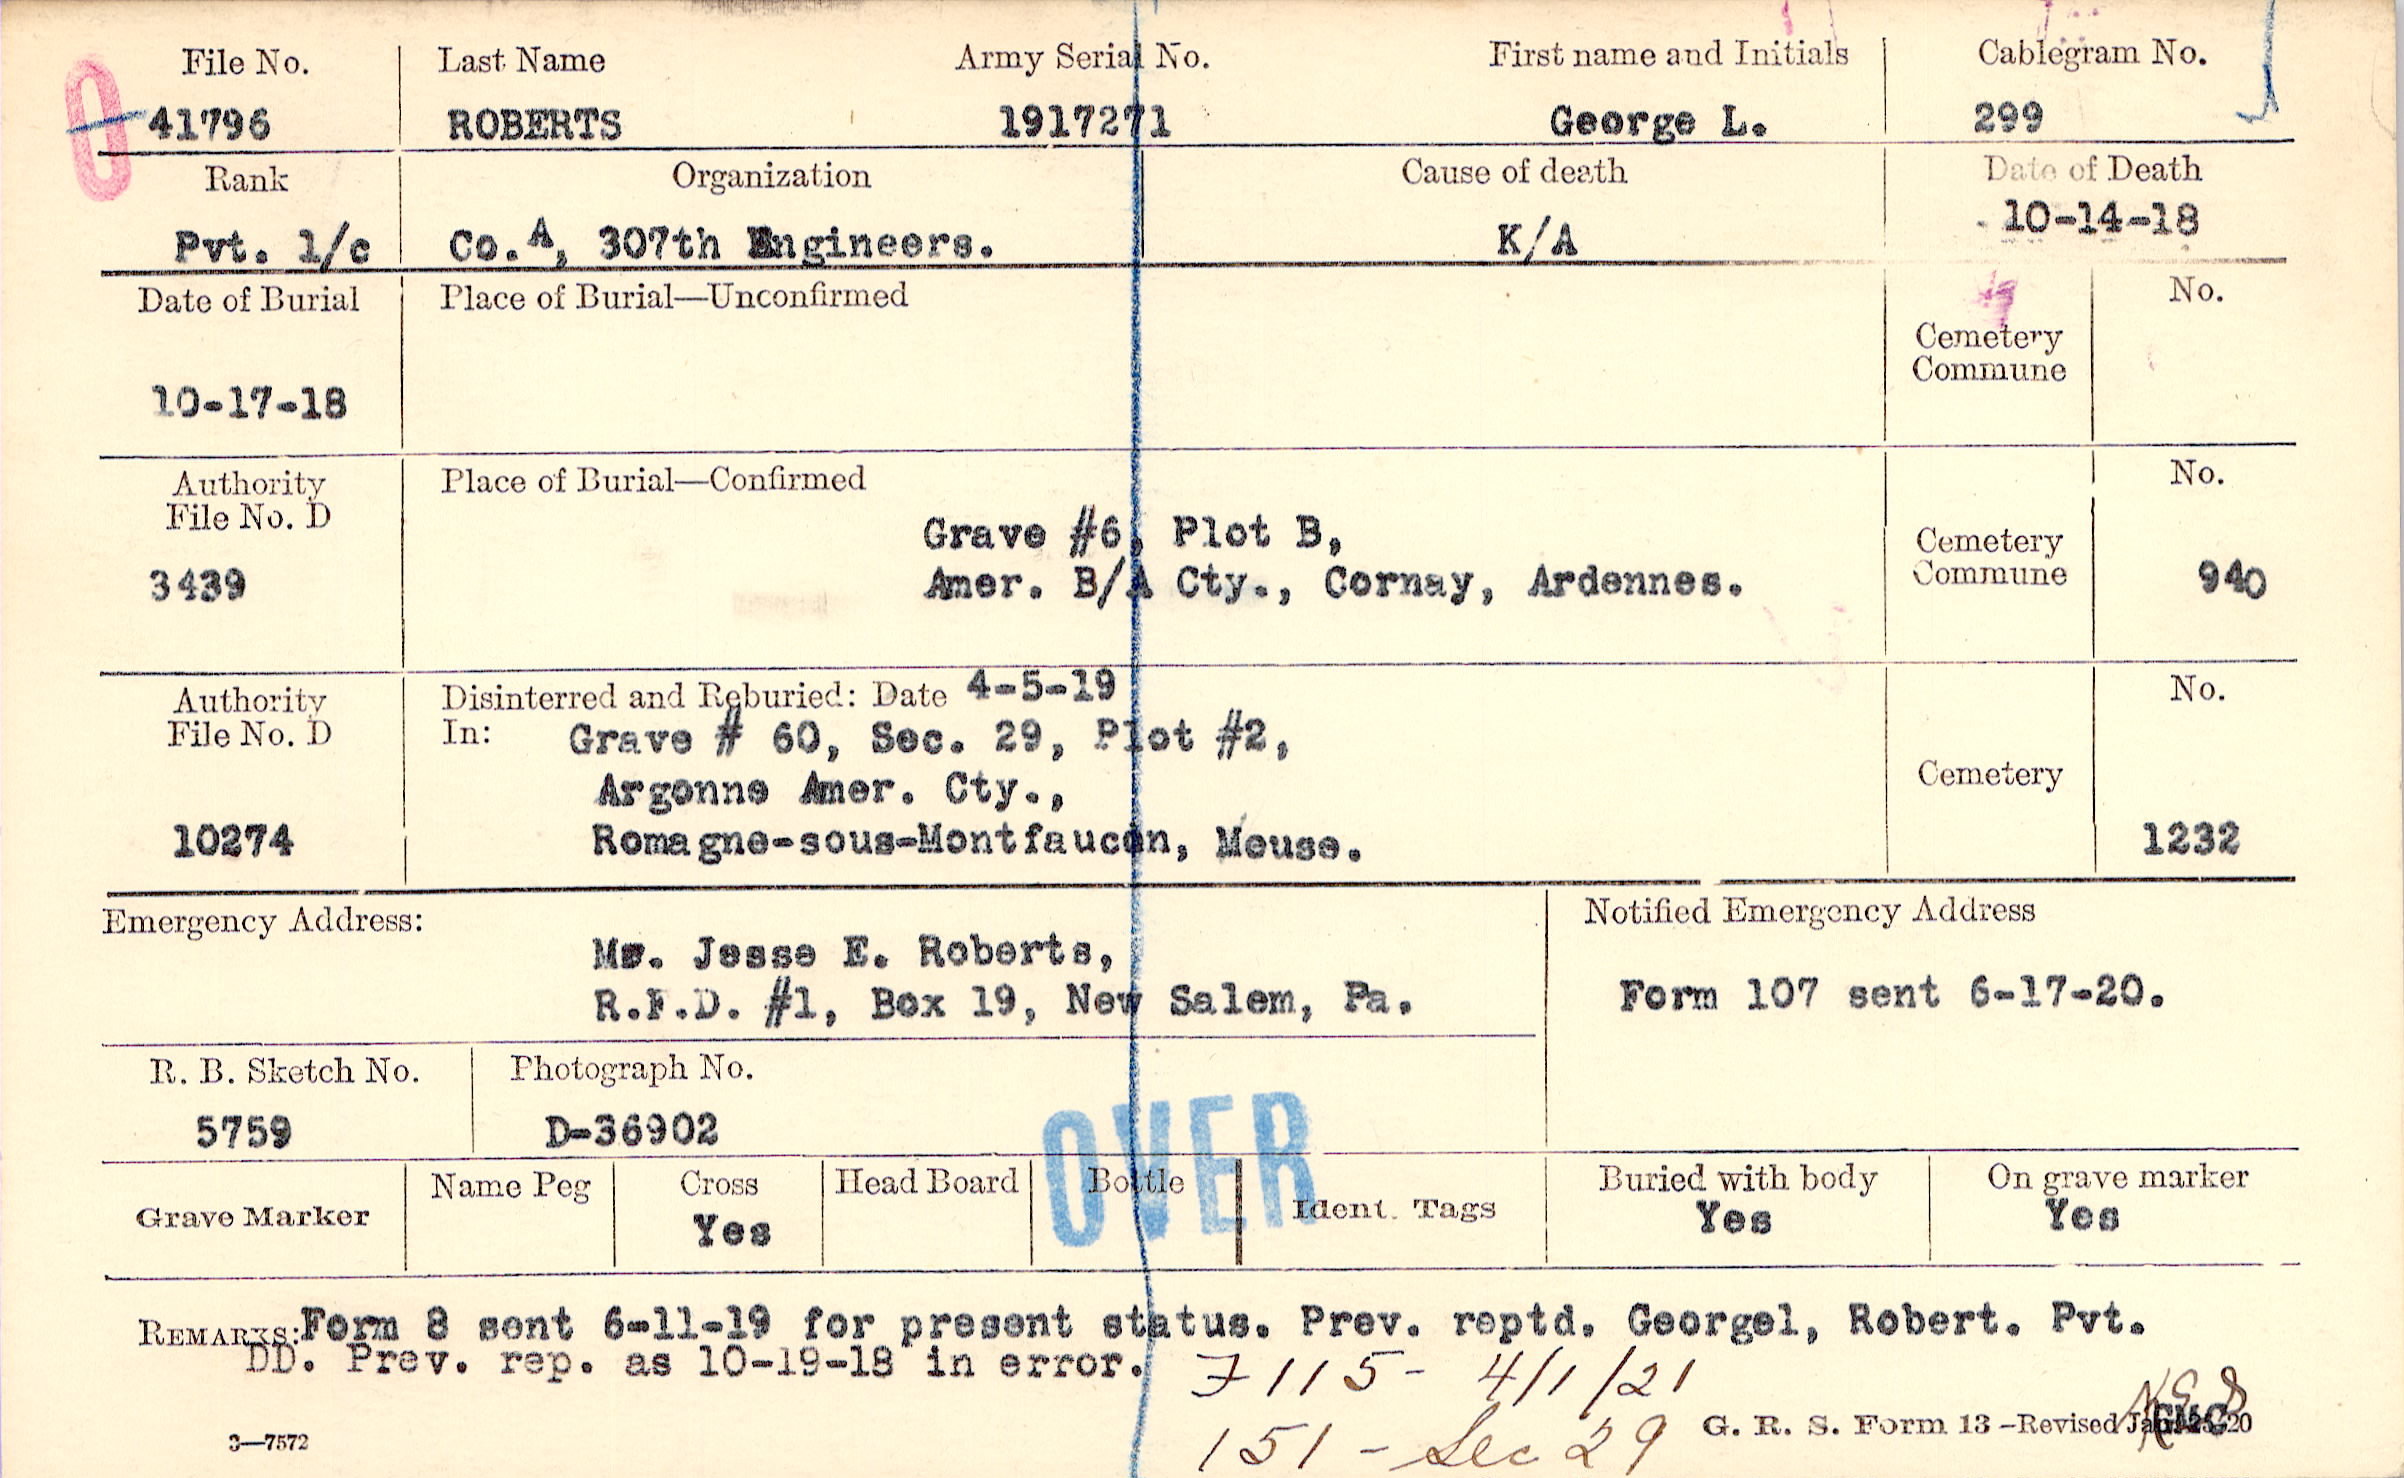 File No. Last Name Army Serial No. First name and Initials Cablegram No.
41796 ROBERTS 1917271 George L. 299
Rank Organization Cause of death Date of Death
Pvt. 1/c Co. A, 307th Engineers. K/A 10-14-18
Date of Burial Place of Burial—Unconfirmed No.
Cemetery
Commune
10-17-18
Authority Place of Burial—Confirmed No.
File No. D
Grave #6, Plot B,
Cemetery
Commune
3439 Amer. B/A Cty., Cornay, Ardennes. 940
Authority Disinterred and Reburied: Date 4-5-19 No.
File No. D In: Grave # 60, Sec. 29, Plot #2,
Argonne Amer. Cty., Cemetery
10274 Romagne-sous-Montfaucon, Meuse. 1232
Emergency Address: Notified Emergency Address
Mr. Jesse E. Roberts,
R.F.D. #1, Box 19, New Salem, Pa. Form 107 sent 6-17-20.
R. B. Sketch No. Photograph No.
5759 D-36902
OVER
Grave Marker Name Peg Cross Head Board Bottle Ident. Tags Buried with body On grave marker
Yes Yes Yes
REMARKS: Form 8 sent 6-11-19 for present status. Prev. reptd. Georgel, Robert. Pvt.
DD. Prev. rep. as 10-19-18 in error.
7115- 4/1/21
151 - Sec 29
3—7572 G. R. S. Form 13 -Revised